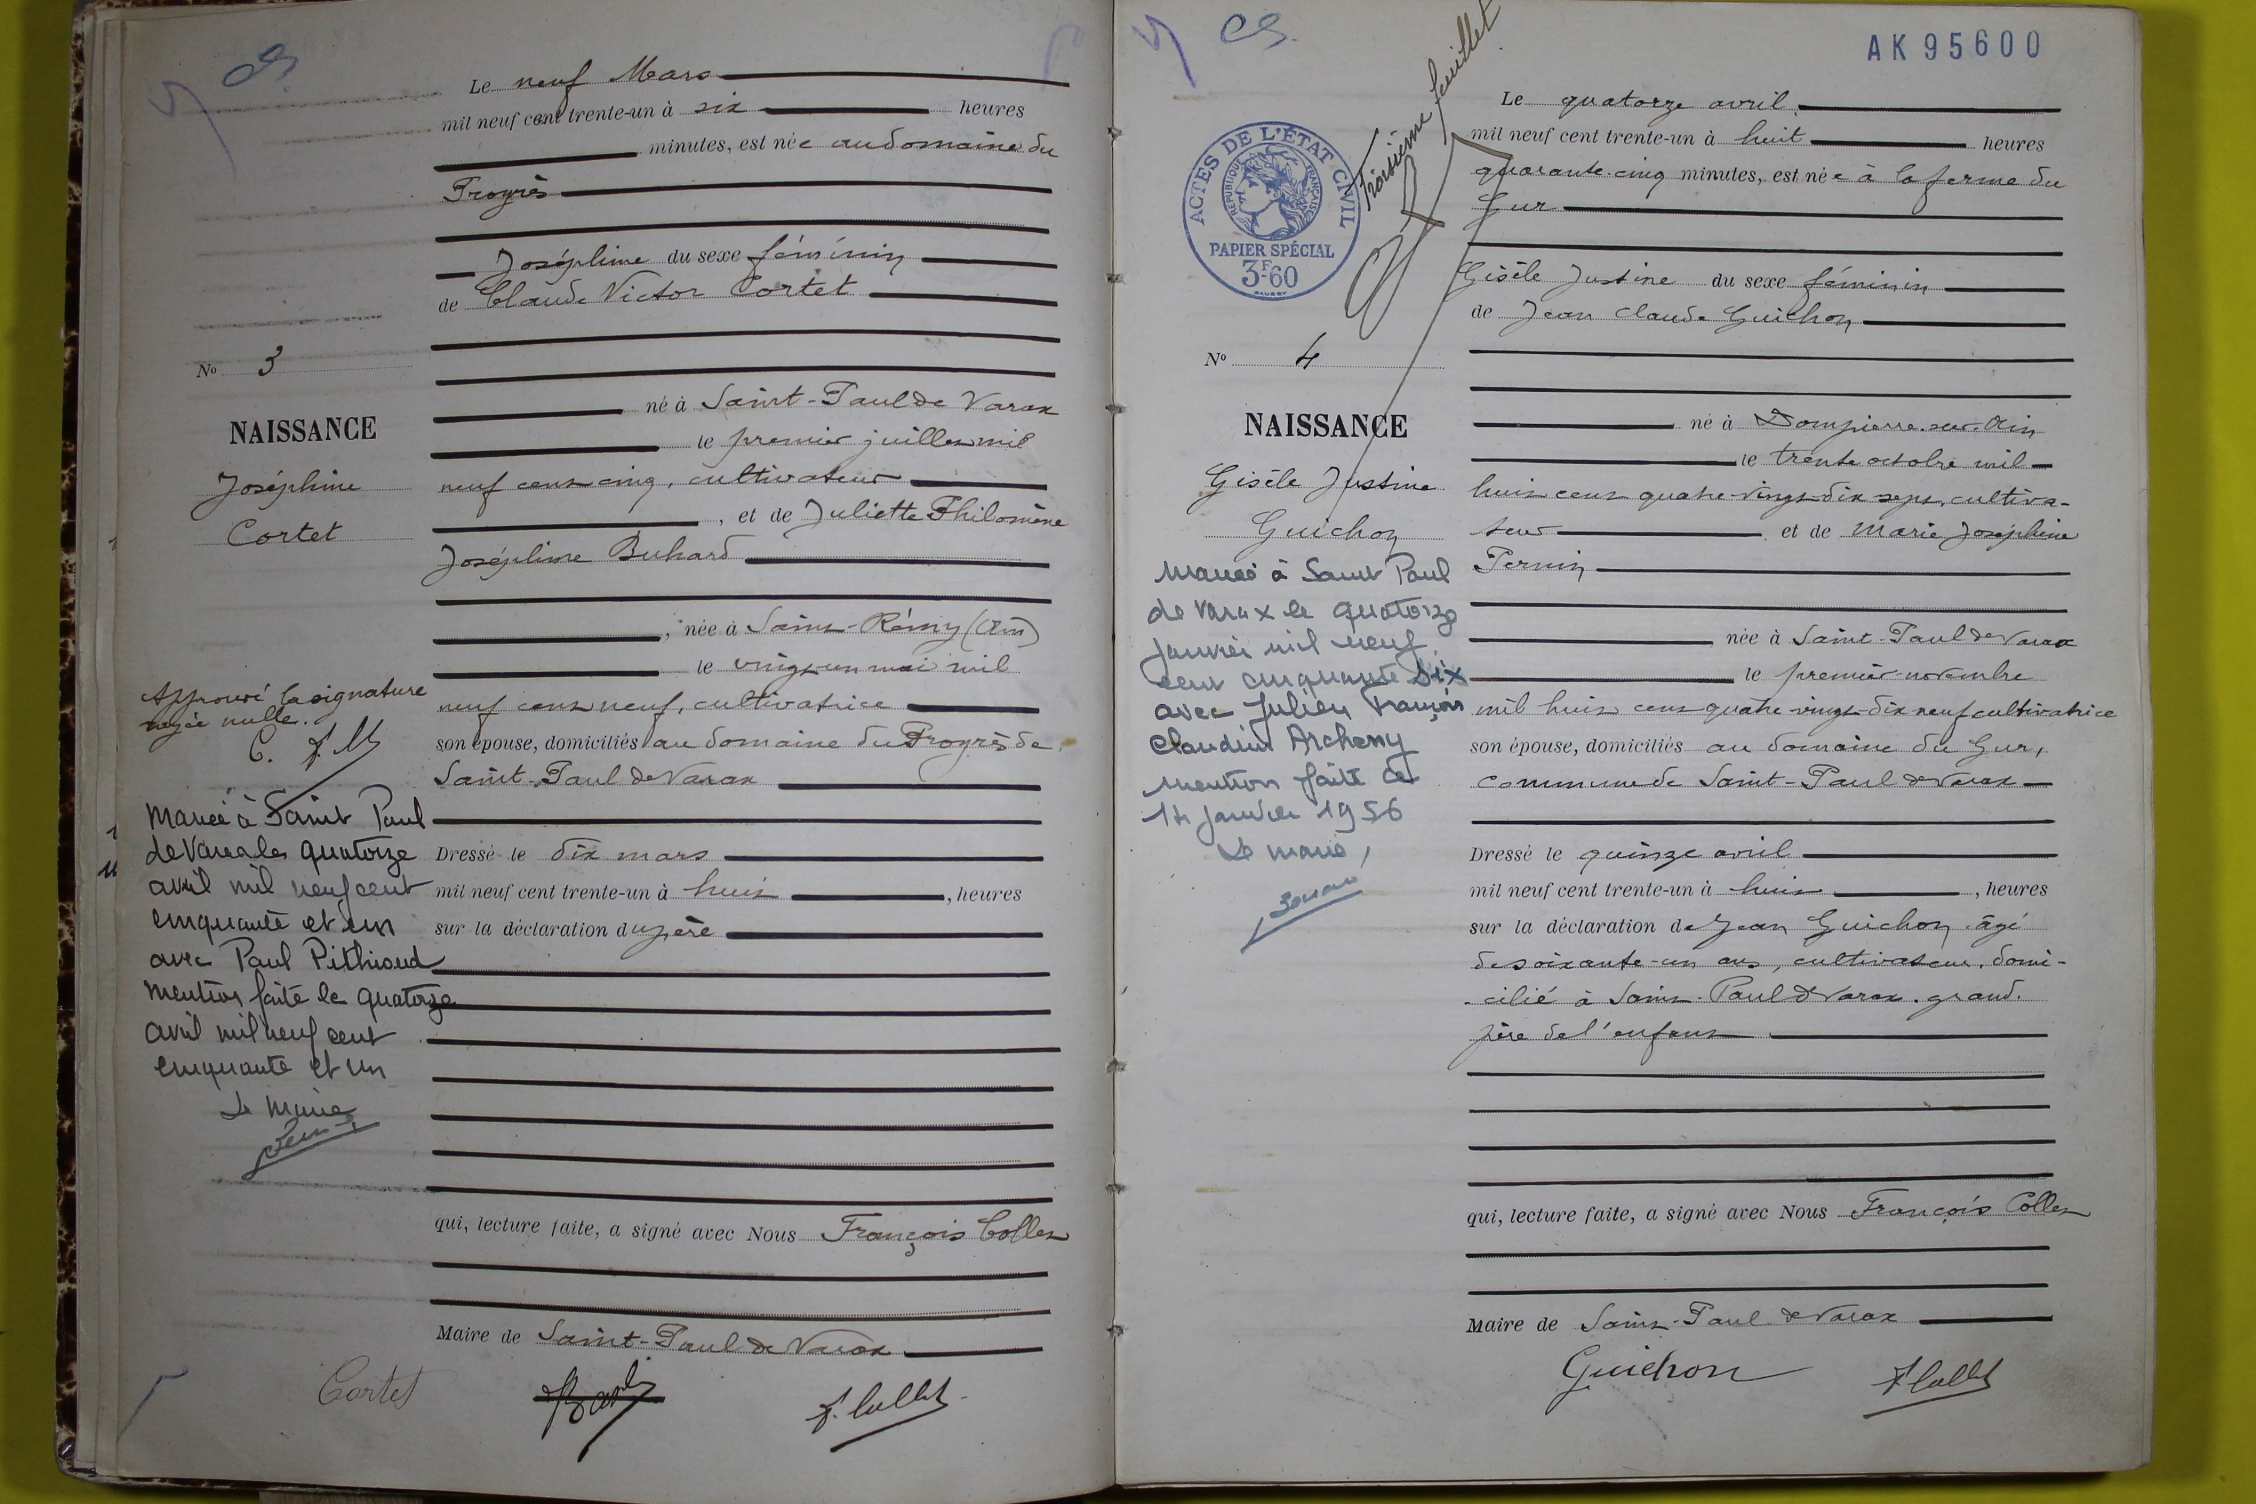 Le neuf Mars
mil neuf cent trente-un à six heures
minutes, est née au domaine du
Progrès
Joséphine du sexe féminin
de Claude Victor Cortet
No 3
NAISSANCE
Joséphine
Cortet
né à Saint-Paul de Varax
le premier juillet mil
neuf cent cinq, cultivateur
, et de Juliette Philomène
Joséphine Buhard
, née à Saint-Rémy (Ain)
le vingt un mai mil
neuf cent neuf, cultivatrice
son épouse, domiciliés au domaine du Progrès de
Saint-Paul de Varax
Approuvé la signature
rayée nulle.
Mariée à Saint Paul
de Varax le quatorze
avril mil neuf cent
cinquante et un
avec Paul Pithioud
Mention faite le quatorze
avril mil neuf cent
cinquante et un
Le Maire
Dressé le dix mars
mil neuf cent trente-un à huit , heures
sur la déclaration du père
qui, lecture faite, a signé avec Nous François Collet
Maire de Saint-Paul de Varax
Cortet F. Collet
AK 95600
Troisième feuillet
ACTES DE L'ÉTAT CIVIL
RÉPUBLIQUE FRANÇAISE
PAPIER SPÉCIAL
3F.60
Le quatorze avril
mil neuf cent trente-un à huit heures
quarante-cinq minutes, est née à la ferme du
Gur
Gisèle Justine du sexe féminin
de Jean Claude Guichon
No 4
NAISSANCE
Gisèle Justine
Guichon
né à Dompierre-sur-Ain
le trente octobre mil
huit cent quatre-vingt-dix sept, cultiva-
teur et de Marie Joséphine
Pernin
née à Saint-Paul de Varax
le premier novembre
mil huit cent quatre-vingt-dix neuf cultivatrice
son épouse, domiciliés au domaine du Gur,
commune de Saint-Paul de Varax
Mariée à Saint Paul
de Varax le quatorze
janvier mil neuf
cent cinquante six
avec Julien François
Claudius Archeny
Mention faite le
14 janvier 1956
Le maire,
Dressé le quinze avril
mil neuf cent trente-un à huit , heures
sur la déclaration de Jean Guichon, âgé
de soixante-un ans, cultivateur, domi-
-cilié à Saint-Paul de Varax, grand-
père de l'enfant
qui, lecture faite, a signé avec Nous François Collet
Maire de Saint-Paul de Varax
Guichon F Collet